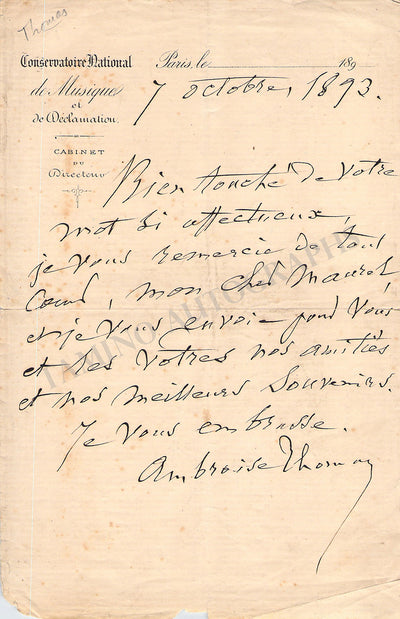 Thomas
Conservatoire National
de Musique
et
de Déclamation.
CABINET
DU
Directeur
Paris, le 189
7 octobre, 1893.
Bien touché de votre
mot si affectueux,
je vous remercie de tout
cœur, mon cher Maurel,
et je vous envoie pour vous
et les vôtres nos amitiés
et nos meilleurs souvenirs.
Je vous embrasse.
Ambroise Thomas
TAMINO AUTOGRAPHS